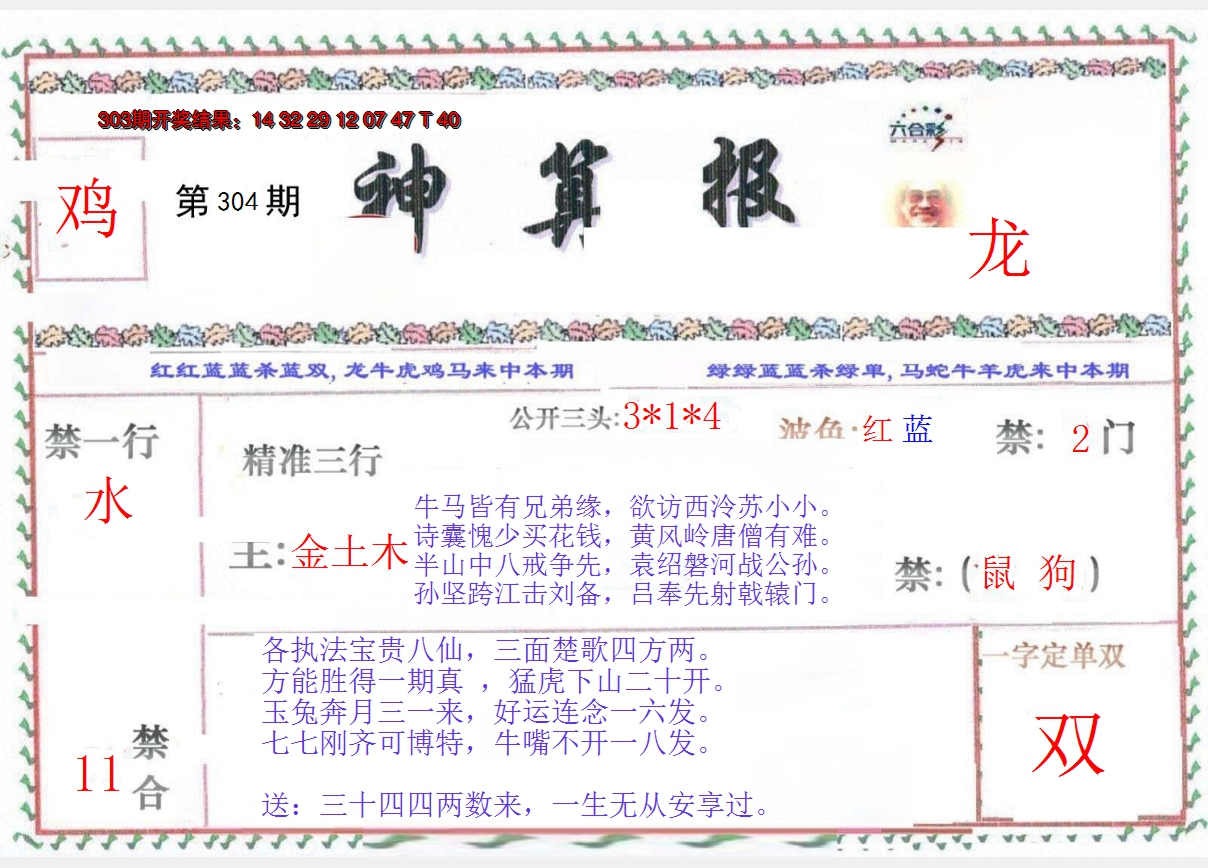 303期开奖结果：14 32 29 12 07 47 T 40
六合彩
鸡
第 304 期
神算报
龙
红红蓝蓝杀蓝双,龙牛虎鸡马来中本期
绿绿蓝蓝杀绿单,马蛇牛羊虎来中本期
禁一行
水
精准三行
公开三头:3*1*4
波色:红 蓝
禁: 2 门
王:金土木
牛马皆有兄弟缘，欲访西泠苏小小。
诗囊愧少买花钱，黄风岭唐僧有难。
半山中八戒争先，袁绍磐河战公孙。
孙坚跨江击刘备，吕奉先射戟辕门。
禁:(鼠 狗)
各执法宝贵八仙，三面楚歌四方两。
方能胜得一期真 ，猛虎下山二十开。
玉兔奔月三一来，好运连念一六发。
七七刚齐可博特，牛嘴不开一八发。
送：三十四四两数来，一生无从安享过。
11 禁合
一字定单双
双